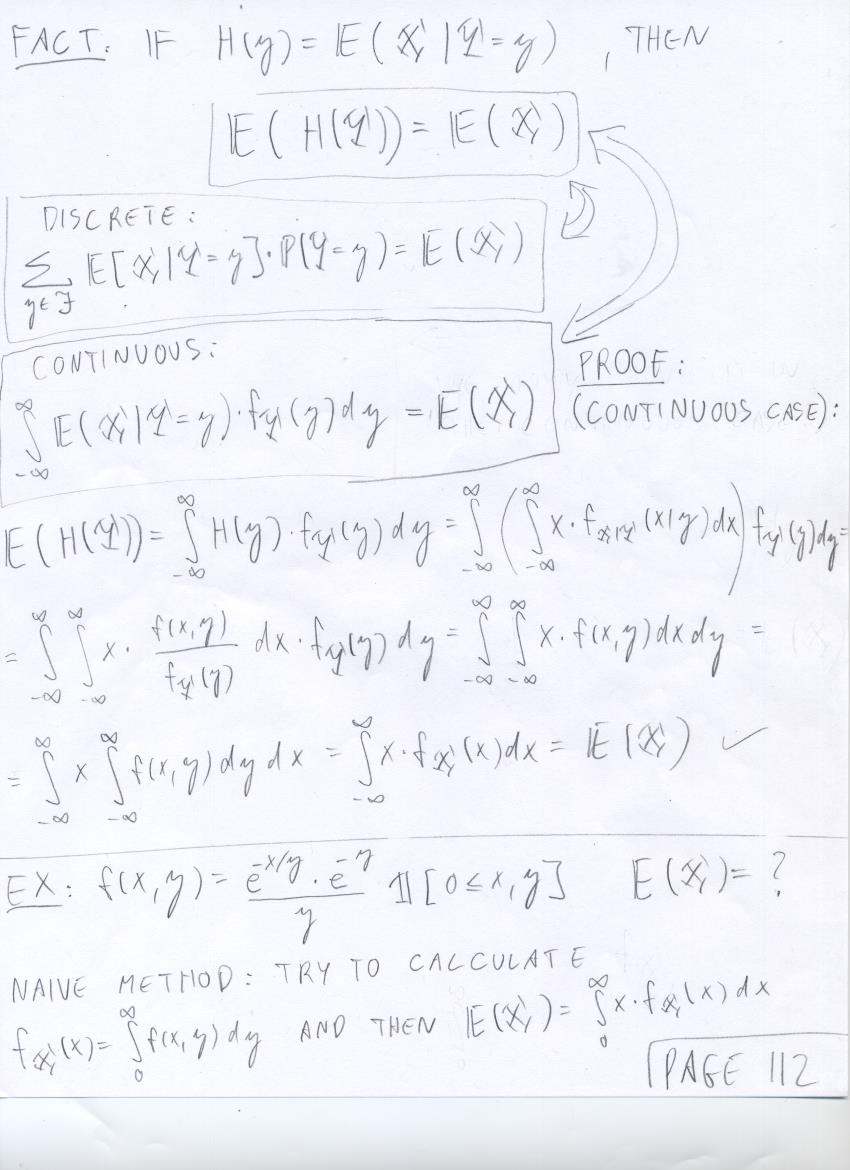 FACT: IF H(y) = E(X | Y = y), THEN
E(H(Y)) = E(X)
DISCRETE:
∑_{y∈J} E[X | Y = y] · P(Y = y) = E(X)
CONTINUOUS:
∫_{-∞}^{∞} E(X | Y = y) · f_Y(y) dy = E(X)
PROOF:
(CONTINUOUS CASE):
E(H(Y)) = ∫_{-∞}^{∞} H(y) · f_Y(y) dy = ∫_{-∞}^{∞} ( ∫_{-∞}^{∞} x · f_{X|Y}(x|y) dx ) f_Y(y) dy =
= ∫_{-∞}^{∞} ∫_{-∞}^{∞} x · f(x,y)/f_Y(y) dx · f_Y(y) dy = ∫_{-∞}^{∞} ∫_{-∞}^{∞} x · f(x,y) dx dy =
= ∫_{-∞}^{∞} x ∫_{-∞}^{∞} f(x,y) dy dx = ∫_{-∞}^{∞} x · f_X(x) dx = E(X) ✓
EX: f(x,y) = (e^{-x/y} · e^{-y})/y 𝟙[0 ≤ x,y] E(X) = ?
NAIVE METHOD: TRY TO CALCULATE
f_X(x) = ∫_0^∞ f(x,y) dy AND THEN E(X) = ∫_0^∞ x · f_X(x) dx
PAGE 112